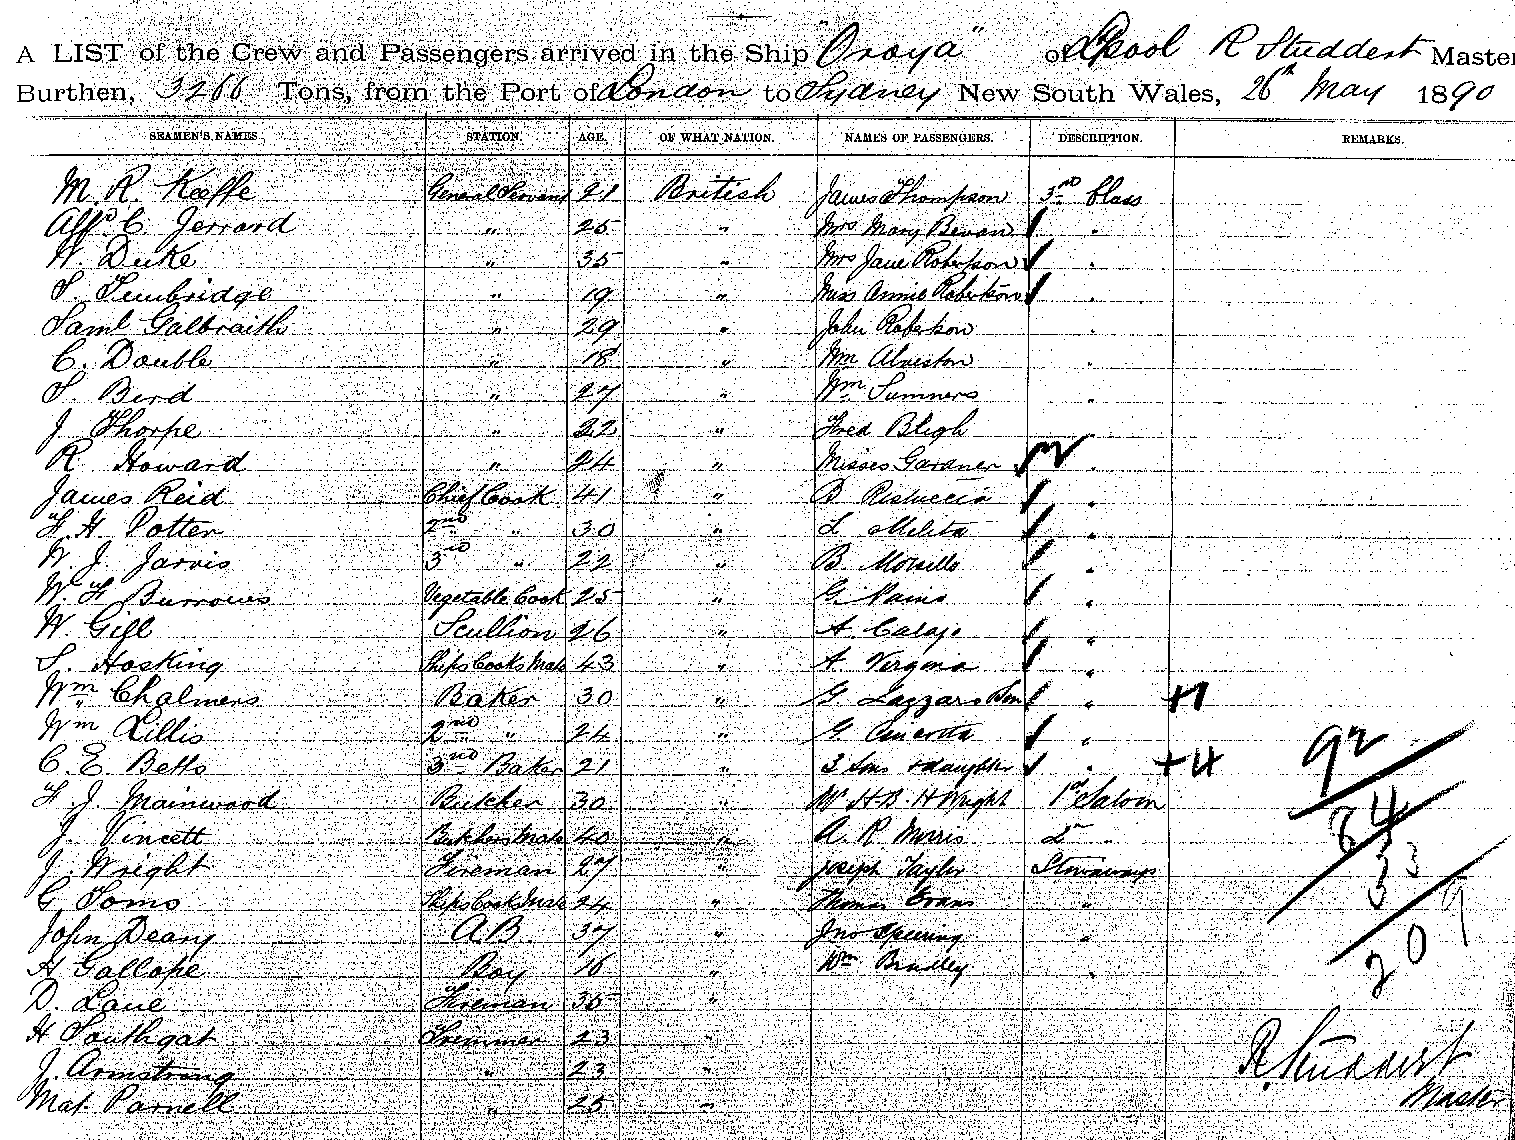 A LIST of the Crew and Passengers arrived in the Ship "Oroya" of L'pool R Studdert Master
Burthen, 3266 Tons, from the Port of London to Sydney New South Wales, 26th May 1890
SEAMEN'S NAMES. STATION. AGE. OF WHAT NATION. NAMES OF PASSENGERS. DESCRIPTION. REMARKS.
M. R. Keeffe General Servant 21 British James Thompson 3rd Class
Alfd C Jerrard " 25 " Mrs Mary Bevan "
W. Duke " 35 " Mrs Jane Robertson "
S. Tembridge " 19 " Miss Annie Robertson "
Saml Galbraith " 29 " John Robertson "
C. Double " 18 " Wm Alveston "
S. Bird " 27 " Wm Summers "
J Thorpe " 22 " Fred Bligh
R Howard " 24 " Misses Gardner 2 "
James Reid Chief Cook 41 " B "
F. H. Potter 2nd " 30 " L Melita "
W J. Jarvis 3rd " 22 " B Morsello "
W. F Burrows Vegetable Cook 25 " G. "
W. Gill Scullion 26 " A "
S. Hosking Ships Cooks Mate 43 " A. Virgona "
Wm Chalmers Baker 30 " G Lazzaro Son " +1
Wm Lillis 2nd " 24 " G. "
C. E. Betts 3rd Baker 21 " 3 Sons & daughter " +4 92
F J. Mainwood Butcher 30 " Mr H. B. H Wright 1st Saloon 84
J. Vincett Butchers Mate 40 " A. R Morris 2nd "
J. Wright Fireman 27 " Joseph Taylor Stowaways 33
G. Toms Ships Cook Mate 24 " Thomas Evans "
John Deary A.B. 37 " Jno Speering " 209
H Gallope Boy 16 " Wm Bradley "
D. Lane Fireman 35 "
H Southgat Trimmer 23 "
J. Armstrong " 23 " R. Studdert
Mat. Parnell " 25 " Master